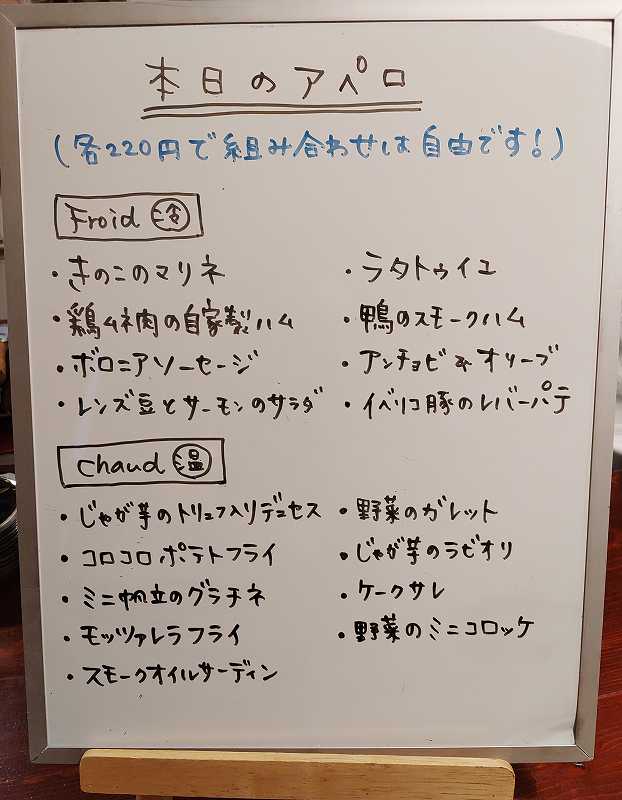 本日のアペロ
(各220円で組み合わせは自由です!)
Froid 冷
・きのこのマリネ
・鶏ムネ肉の自家製ハム
・ボロニアソーセージ
・レンズ豆とサーモンのサラダ
・ラタトゥイユ
・鴨のスモークハム
・アンチョビ&オリーブ
・イベリコ豚のレバーパテ
Chaud 温
・じゃが芋のトリュフ入リデュセス
・コロコロポテトフライ
・ミニ帆立のグラチネ
・モッツァレラフライ
・スモークオイルサーディン
・野菜のガレット
・じゃが芋のラビオリ
・ケークサレ
・野菜のミニコロッケ